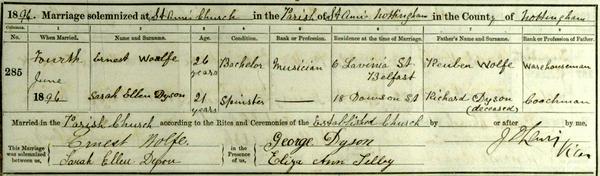 1896. Marriage solemnized at St Ann's Church in the Parish of St Ann's Nottingham in the County of Nottingham
Columns. 1 2 3 4 5 6 7 8
No. When Married. Name and Surname. Age. Condition. Rank or Profession. Residence at the time of Marriage. Father's Name and Surname. Rank or Profession of Father.
285 Fourth June 1896 Ernest Woolfe 26 years Bachelor Musician 6 Lavinia St Belfast Reuben Wolfe Warehouseman
Sarah Ellen Dyson 21 years Spinster — 18 Dawson St Richard Dyson (deceased) Coachman
Married in the Parish Church according to the Rites and Ceremonies of the Established Church by or after by me,
This Marriage was solemnized between us, Ernest Wolfe. Sarah Ellen Dyson in the Presence of us, George Dyson Eliza Ann Selby Vicar